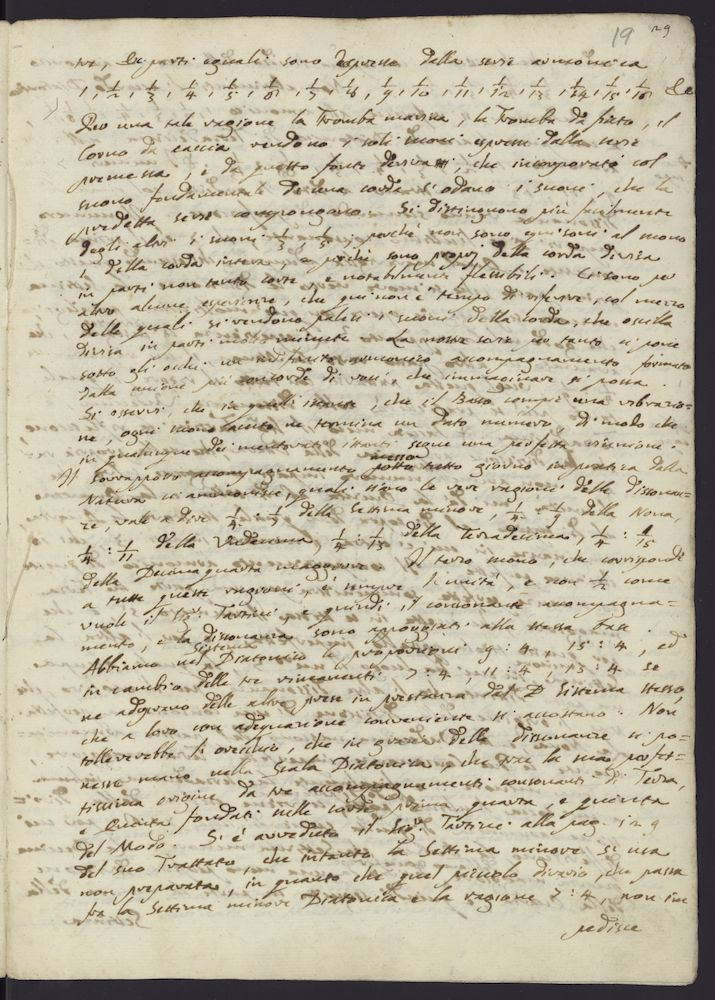 19 29
tre, &c parti eguali sono espresse dalla serie armonica
1, 1/2, 1/3, 1/4, 1/5, 1/6, 1/7, 1/8, 1/9, 1/10, 1/11, 1/12, 1/13, 1/14, 1/15, 1/16 &c
Per una tale ragione la Tromba marina, la Tromba da fiato, il
Corno da caccia rendono i soli suoni espressi dalla serie
premessa, e da questo fonte deriva, che incorporati col
suono fondamentale di una corda s'odano i suoni, che la
predetta serie compongono. Si distinguono più facilmente
degli altri i suoni 1/3, 1/5, perchè non sono equisoni al suono
1 della corda intera, e perchè sono proprj della corda divisa
in parti non tanto corte, e notabilmente flessibili. Ci sono per
altro alcune esperienze, che qui non è tempo di riferire, col mezzo
delle quali si rendono palesi i suoni della corda, che oscilla
divisa in parti più minute. La nostra serie per tanto ci pone
sotto gli occhi un armonico accompagnamento formato
dalla unione più concorde di voci, che immaginare si possa.
Si osservi, che in quell'istante, che il Basso compie una vibrazio=
ne, ogni suono acuto ne termina un dato numero, di modo che
in qualunque dei mentovati istanti segue una perfetta riunione.
Il sovrapposto accompagnamento messo tutto giorno in pratica dalla
Natura ci ammonisce, quali siano le vere ragioni delle dissonan=
ze, vale a dire 1/4 : 1/7 della Settima minore, 1/4 : 1/9 della Nona,
1/4 : 1/11 della Undecima, 1/4 : 1/13 della Terzadecima, 1/4 : 1/15
della Decimaquarta maggiore. Il terzo suono, che corrisponde
a tutte queste ragioni, è sempre l'unità, e non 1/2 come
vuole il Sigr. Tartini, e quindi il consonante accompagna=
mento, e la dissonanza sono appoggiati alla stessa base.
Abbiamo nel Sistema Diatonico le proporzioni 9 : 4, 15 : 4, ed
in cambio delle tre rimanenti 7 : 4, 11 : 4, 13 : 4 se
ne adoprano delle altre prese in prestanza dal D. Sistema stesso,
che a loro con adeguazione conveniente si accostano. Non
tollererebbe l'orecchio, che in grazia delle dissonanze si po=
nesse mano nella Scala Diatonica, che trae la sua perfet=
tissima origine da tre accompagnamenti consonanti di Terza,
e Quinta fondati nelle corde prima, quarta, e quinta
del Modo. Si è avveduto il Sigr. Tartini alla pag. 129
del suo Trattato, che intanto la Settima minore si usa
non preparata, in quanto che quel piccolo divario, che passa
fra la Settima minore Diatonica e la ragione 7 : 4, non im
pedisce